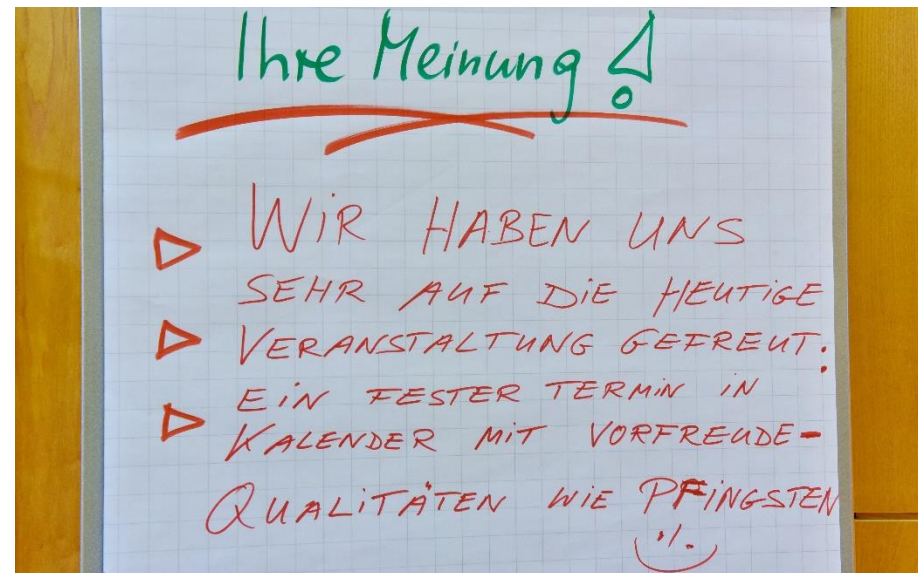 Ihre Meinung !
WIR HABEN UNS
SEHR AUF DIE HEUTIGE
VERANSTALTUNG GEFREUT.
EIN FESTER TERMIN IN
KALENDER MIT VORFREUDE-
QUALITÄTEN WIE PFINGSTEN